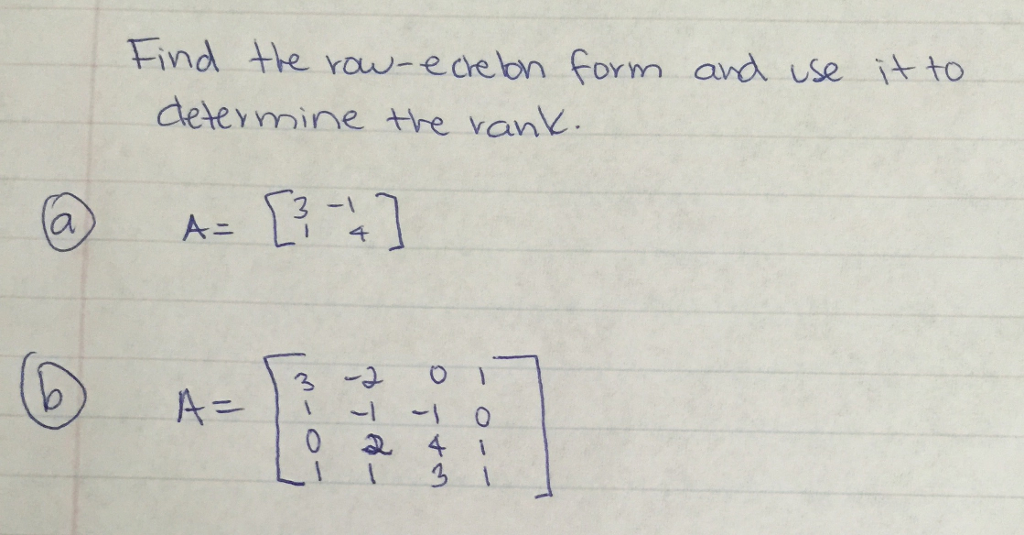 Find the row-echelon form and use it to
determine the rank.
(a) A = [3 -1
1 4]
(b) A = [3 -2 0 1
1 -1 -1 0
0 2 4 1
1 1 3 1]